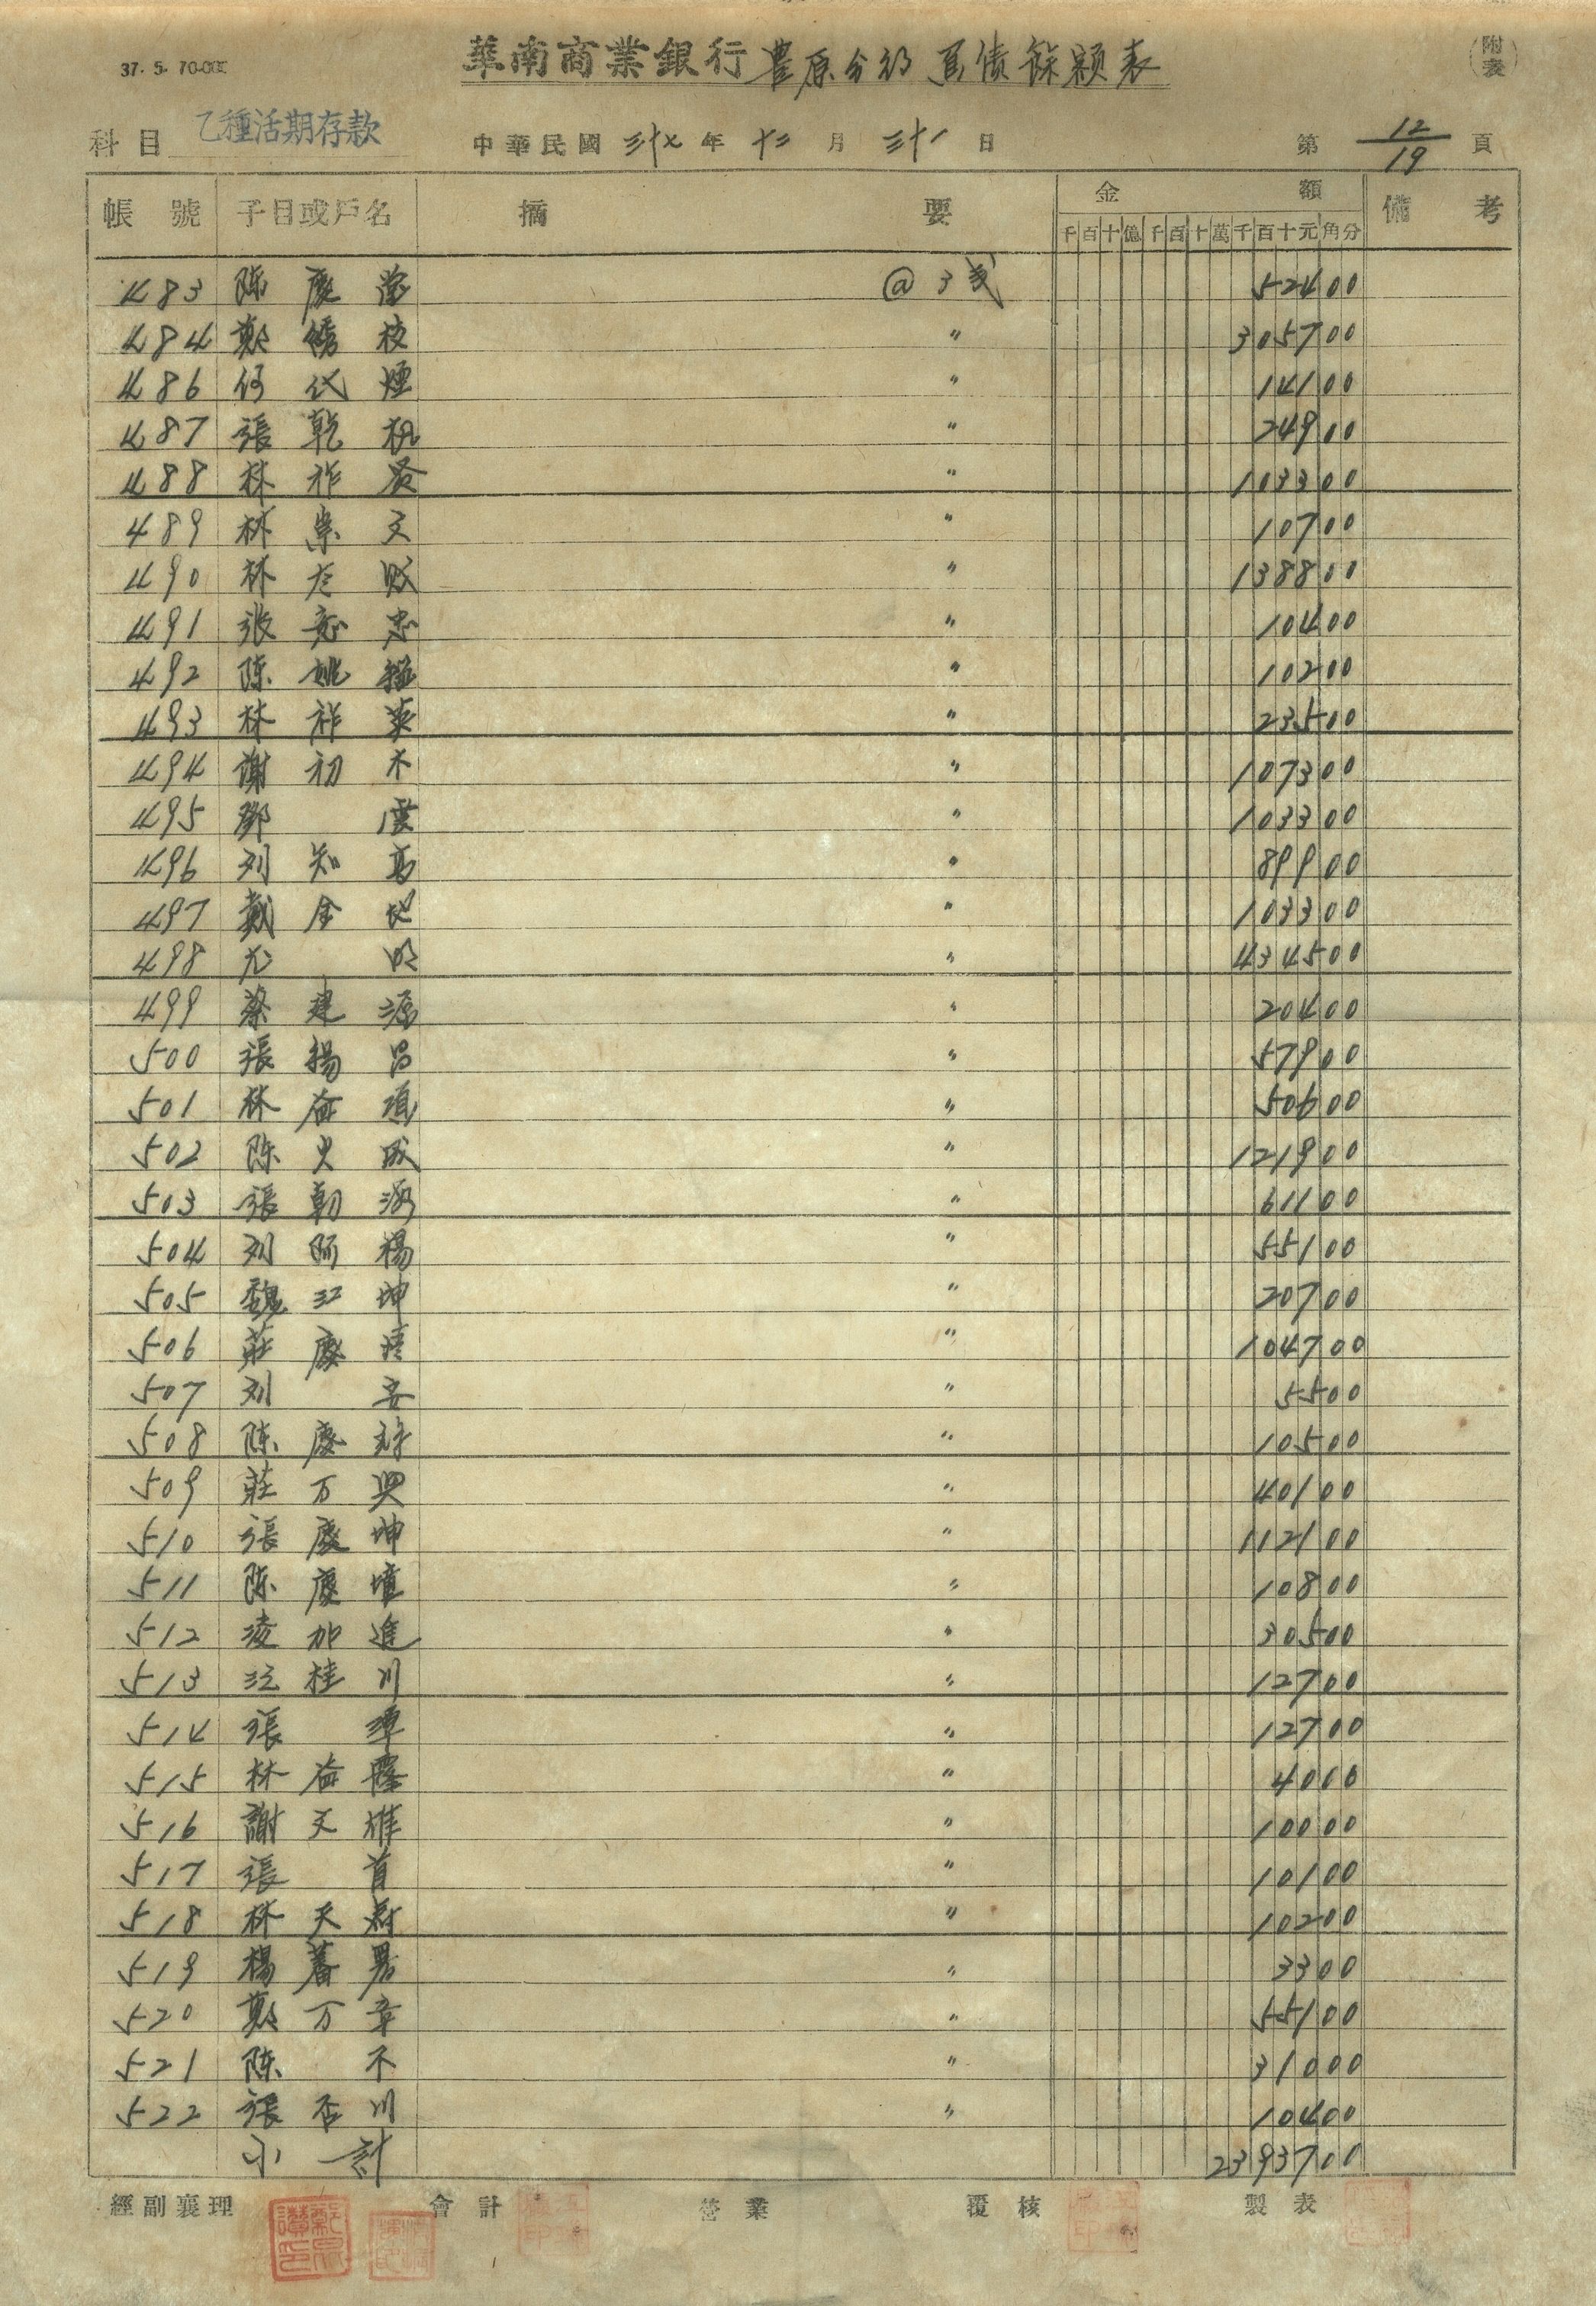 37. 5. 70.00
華南商業銀行豐原分行負債餘額表
附表
科目 乙種活期存款 中華民國 三十七 年 十二 月 三十一 日 第 12/19 頁
帳號 子目或戶名 摘要 金額 備考
千百十億千百十萬千百十元角分
483 陳慶 @ 3 524 00
484 鄭綉枝 〃 3057 00
486 何代煙 〃 141 00
487 張乾 〃 249 00
488 林祚 〃 1033 00
489 林崇文 〃 107 00
490 林 〃 1388 00
491 張 忠 〃 104 00
492 陳姚 〃 102 00
493 林祥 〃 235 00
494 謝初木 〃 1073 00
495 鄧 〃 1033 00
496 刘知高 〃 899 00
497 戴金地 〃 1033 00
498 尤 〃 4345 00
499 蔡建源 〃 204 00
500 張揚昌 〃 579 00
501 林益 〃 506 00
502 陳火成 〃 1219 00
503 張朝 〃 611 00
504 刘阿楊 〃 551 00
505 魏江坤 〃 207 00
506 莊慶 〃 1047 00
507 刘安 〃 55 00
508 陳慶 〃 105 00
509 莊万興 〃 401 00
510 張慶坤 〃 1121 00
511 陳慶 〃 108 00
512 凌加進 〃 305 00
513 江桂川 〃 127 00
514 張 〃 127 00
515 林益隆 〃 40 00
516 謝文雄 〃 100 00
517 張首 〃 101 00
518 林天 〃 102 00
519 楊蕃 〃 33 00
520 鄭万章 〃 551 00
521 陳不 〃 310 00
522 張否川 〃 104 00
小計 23937 00
經副襄理 會計 營業 覆核 製表